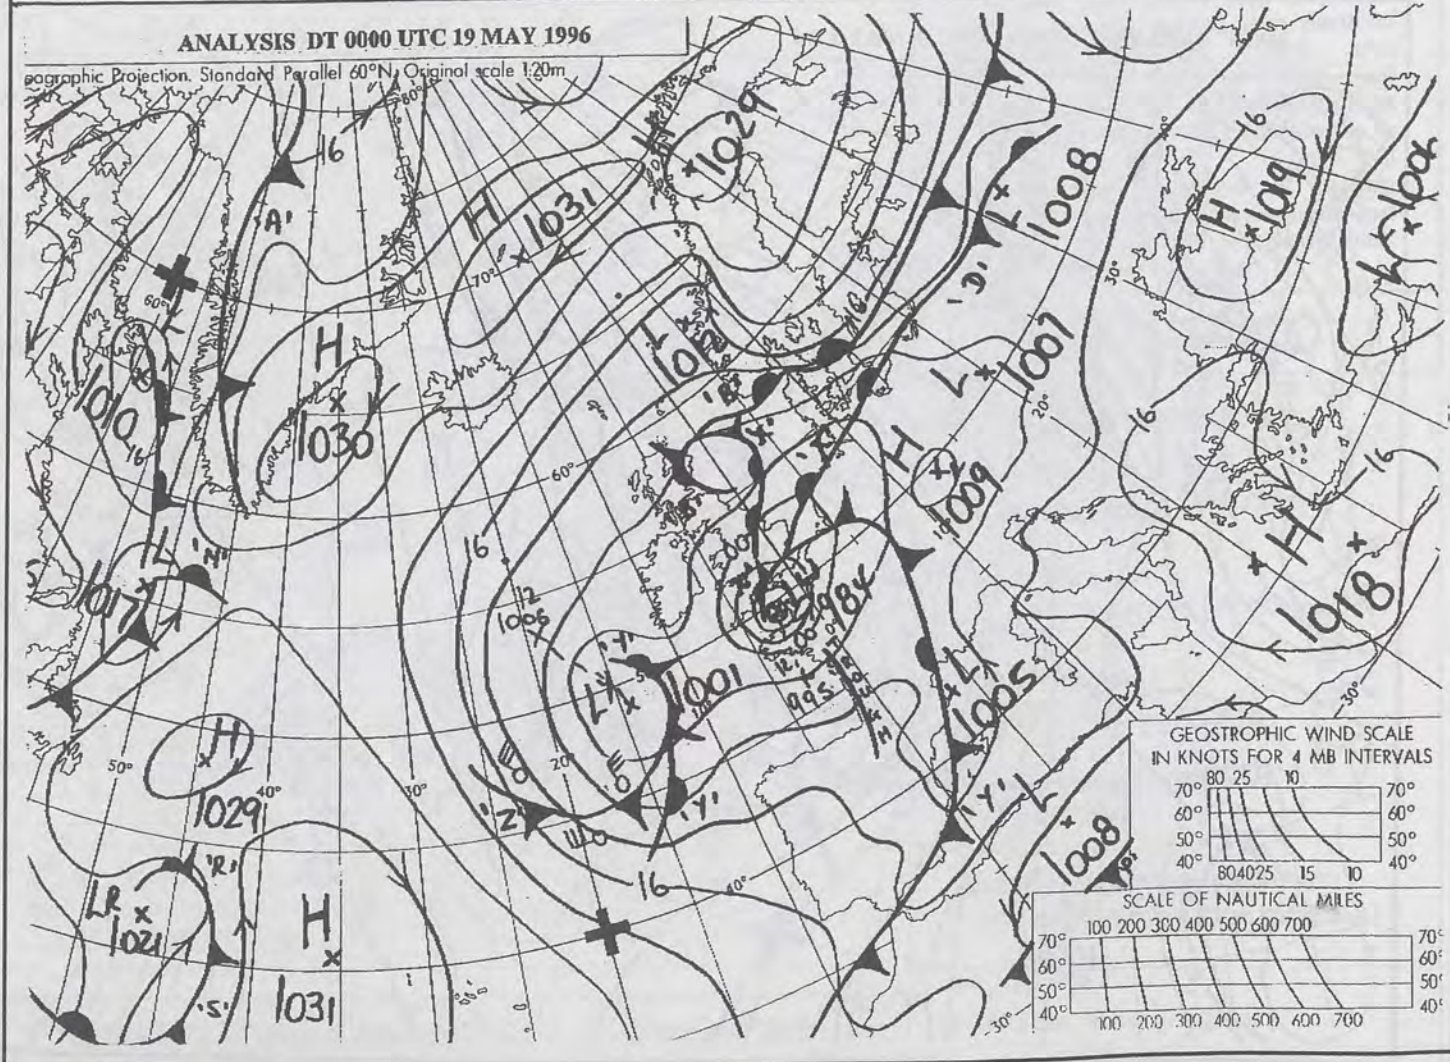 ANALYSIS DT 0000 UTC 19 MAY 1996
eographic Projection. Standard Parallel 60°N. Original scale 1:20m
80°
16
'A'
H
1031
70°
H
1029
'D'
L
1008
40°
16
H
1019
L
100
30°
60°
1010
16
H
1030
L
1012
16
'B'
'X'
'X'
60°
L
1007
20°
H
1009
10°
16
16
H
1018
30°
LL
'N'
1017
16
12
1006
'Y'
LY
1001
'B'
984
12
995
L
1005
H
1029
50°
40°
30°
20°
'Z'
'Y'
'Y'
L
1008
16
40°
LR
1021
'R'
'S'
H
1031
30°
GEOSTROPHIC WIND SCALE
IN KNOTS FOR 4 MB INTERVALS
80 25 10
70° 70°
60° 60°
50° 50°
40° 40°
80 40 25 15 10
SCALE OF NAUTICAL MILES
100 200 300 400 500 600 700
70° 70°
60° 60°
50° 50°
40° 40°
100 200 300 400 500 600 700